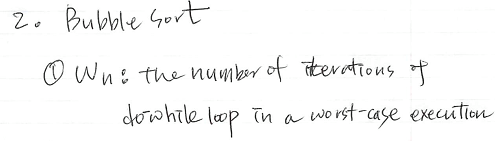 2. Bubble Sort
① Wn: the number of iterations of
dowhile loop in a worst-case execution